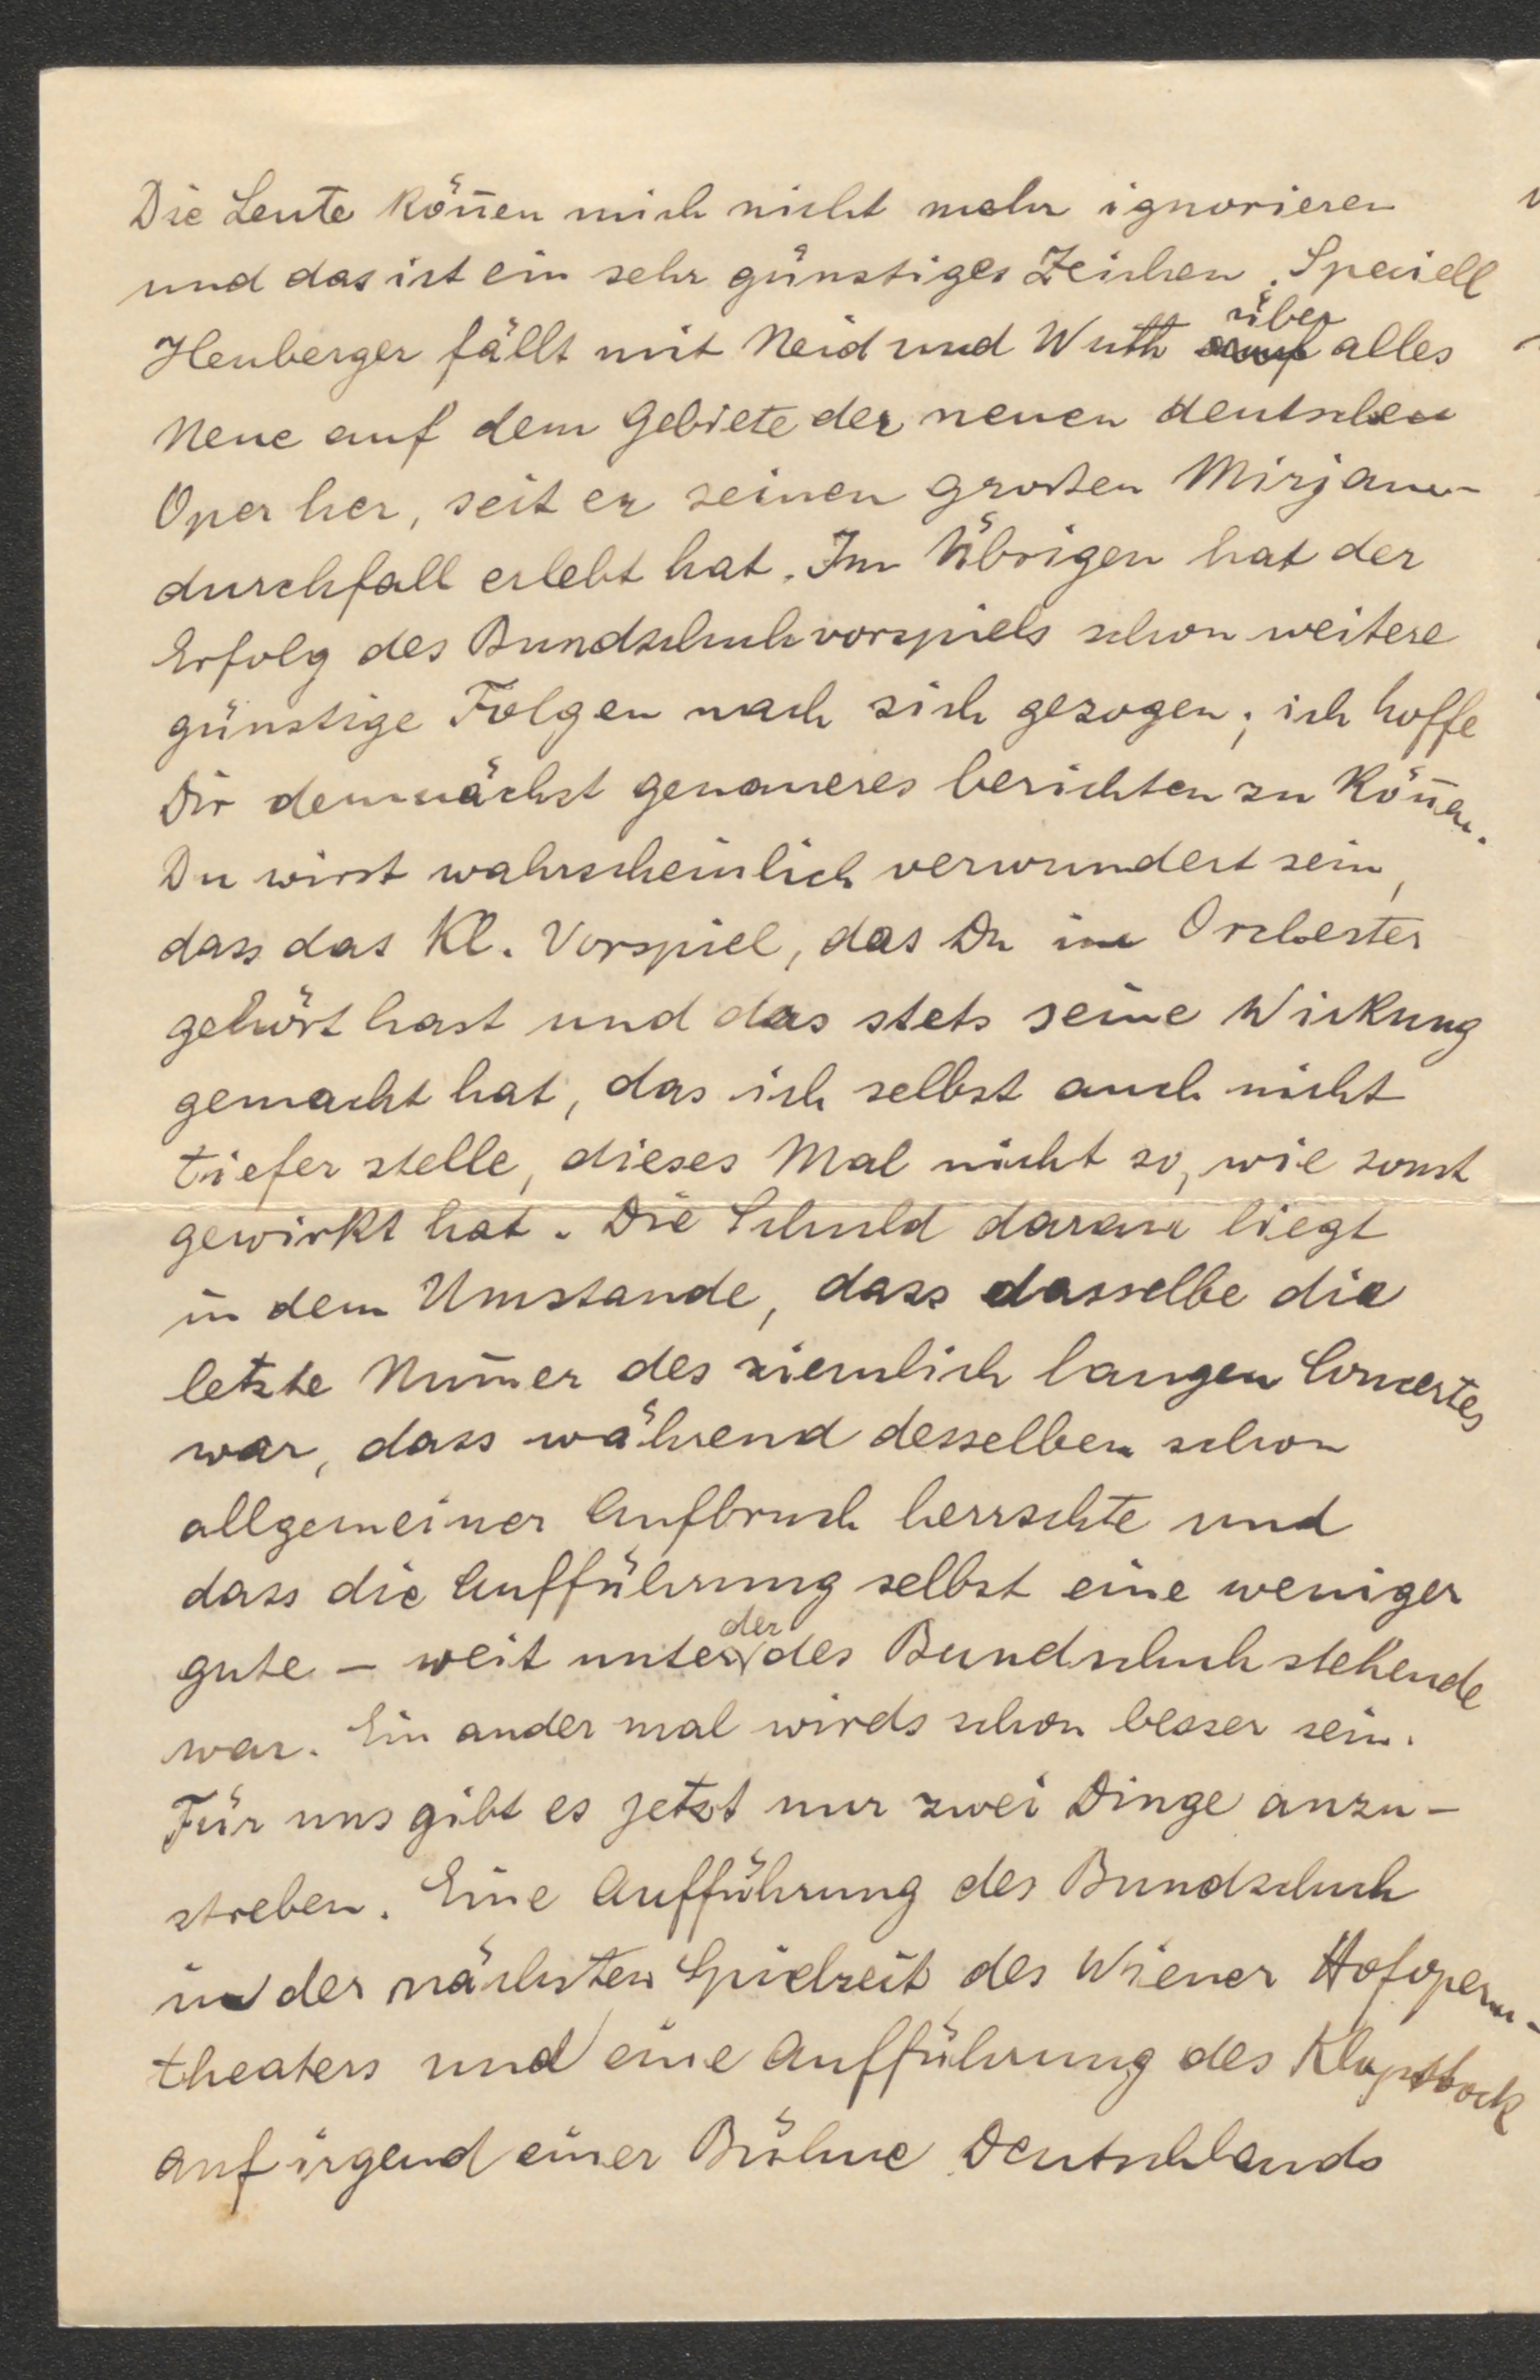 Die Leute kön̄en mich nicht mehr ignorieren
und das ist ein sehr günstiges Zeichen. Speciell
Heuberger fällt mit Neid und Wuth über alles
Neue auf dem Gebiete der neuen deutschen
Oper her, seit er seinen großen Mirjam-
durchfall erlebt hat. Im Übrigen hat der
Erfolg des Bundschuhvorspiels schon weitere
günstige Folgen nach sich gezogen; ich hoffe
Dir demnächst genaueres berichten zu kön̄en.
Du wirst wahrscheinlich verwundert sein,
dass das Kl. Vorspiel, das Du im Orchester
gehört hast und das stets seine Wirkung
gemacht hat, das ich selbst auch nicht
tiefer stelle, dieses Mal nicht so, wie sonst
gewirkt hat. Die Schuld daran liegt
in dem Umstande, dass dasselbe die
letzte Num̄er des ziemlich langen Concertes
war, dass während desselben schon
allgemeiner Aufbruch herrschte und
dass die Aufführung selbst eine weniger
gute – weit unter der des Bundschuh stehende
war. Ein ander mal wirds schon besser sein.
Für uns gibt es jetzt nur zwei Dinge anzu-
streben. Eine Aufführung des Bundschuh
in der nächsten Spielzeit des Wiener Hofopern-
theaters und eine Aufführung des Klopstock
auf irgend einer Bühne Deutschlands